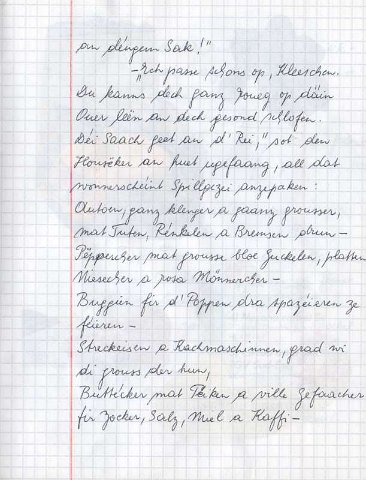 an déngem Sak!"
– „Ech passe schons op, Kleeschen.
Du kanns dech ganz roueg op däin
Ouer leën an dech gesond schlofen.
Déi Saach geet an d'Rei," sot den
Housëker an huet ugefaang, all dat
wonnerschéint Spillgezei anzepaken:
Autoen, ganz klenger a gaanz grousser,
mat Tuten, Rénkelen a Bremsen drun –
Pëppercher mat grousse bloe Guckelen, platten
Niesecher a rosa Mënnercher –
Buggién fir d'Poppen dra spazéieren ze
féieren –
Streckeisen a Kachmaschinnen, grad wi
di grouss der hun,
Buttécker mat Téiken a ville Gefaacher
fir Zocker, Salz, Miel a Kaffi –